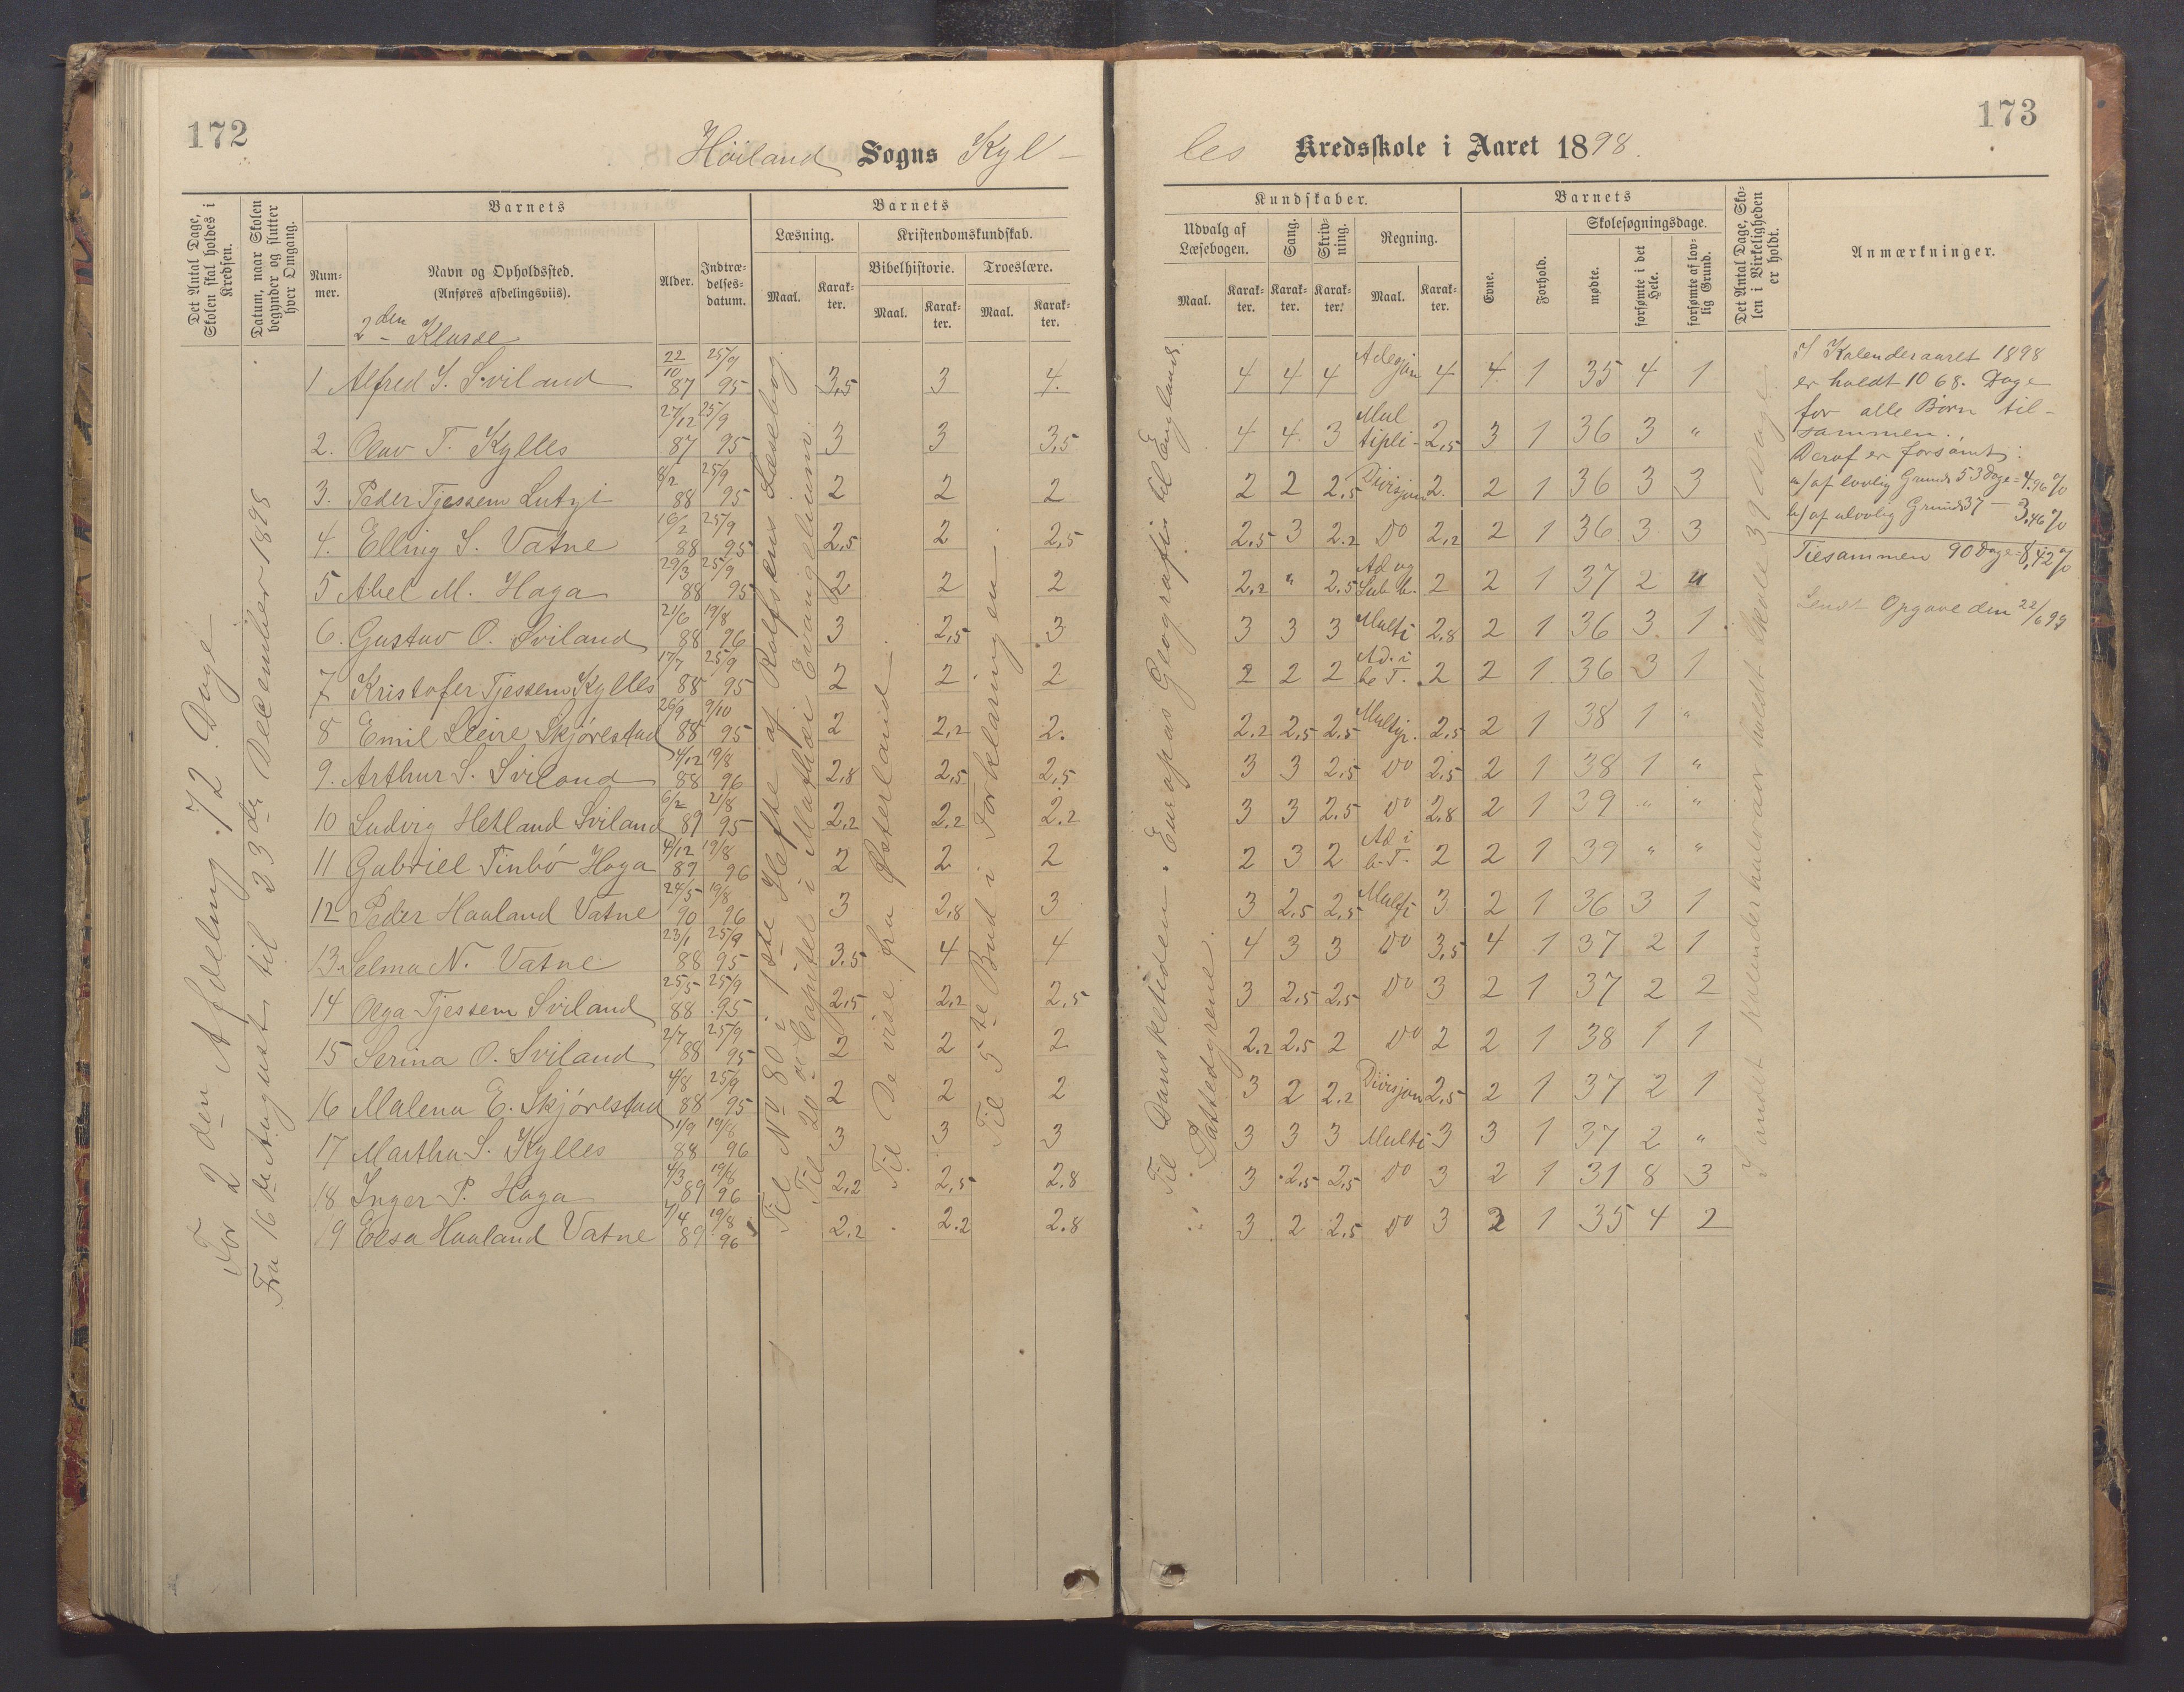 172
Høiland Sogns Kyl-
Det Antal Dage, Skolen skal holdes i Kredsen.
Datum, naar Skolen begynder og slutter hver Omgang.
Barnets
Barnets
Num-mer.
Navn og Opholdssted.
(Anføres afdelingsviis).
Alder.
Indtræ-delses-datum.
Læsning.
Kristendomskundskab.
Maal.
Karak-ter.
Bibelhistorie.
Troeslære.
Maal.
Karak-ter.
Maal.
Karak-ter.
2den Klasse
For 2den Afdeling: 72 Dage
Fra 16de August til 23de December 1898
Til No 80 i 1ste Hefte af Rolfsens Læsebog.
Til 20de Capitel i Mathæi Evangelium.
Til De vise fra Østerland
Til 5te Bud i Forklaringen
1 Alfred S. Sviland 22/10 87 25/9 95 3,5 3 4.
2. Olav T. Kylles 27/12 87 25/9 95 3 3 3,5
3. Peder Tjessem Lutsi 8/2 88 25/9 95 2 2 2
4. Elling S. Vatne 16/2 88 25/9 95 2,5 2 2,5
5 Abel M. Haga 29/3 88 25/9 95 2 2 2
6. Gustav O. Sviland 21/6 88 19/8 96 3 2,5 3
7 Kristofer Tjessem Kylles 17/7 88 25/9 95 2 2 2
8 Emil Skjørestad 26/9 88 9/10 95 2 2,2 2.
9. Arthur S. Sviland 4/12 88 19/8 96 2,8 2,5 2,5
10 Ludvig Hetland Sviland 6/2 89 21/8 95 2,2 2.2 2.2
11 Gabriel Tinbø Haga 4/12 89 19/8 96 2 2 2
12 Peder Haaland Vatne 24/5 90 19/8 96 3 2,8 3
13. Selma N. Vatne 23/1 88 25/9 95 3.5 4 4
14 Olga Tjessem Sviland 25/5 88 25/9 95 2,5 2,2 2,5
15 Serina O. Sviland 2/7 88 25/9 95 2 2 2
16 Malena E. Skjørestad 4/8 88 25/9 95 2 2 2
17 Martha S. Kylles 1/9 88 19/8 96 3 3 3
18 Inger P. Haga 4/3 89 19/8 96 2,2 2,5 2.8
19 Elsa Haaland Vatne 7/4 89 19/8 96 2.2 2.2 2.8
173
les Kredsskole i Aaret 1898.
Kundskaber.
Barnets
Udvalg af Læsebogen.
Sang.
Skriv-ning.
Regning.
Evne.
Forhold.
Skolesøgningsdage.
Det Antal Dage, Sko-len i Virkeligheden er holdt.
Anmærkninger.
Maal.
Karak-ter.
Karak-ter.
Karak-ter.
Maal.
Karak-ter.
mødte.
forsømte i det Hele.
forsømte af lov-lig Grund.
Til Dansketiden. Europas Geografi til Englands.
Pattedyrene.
4 4 4 Adisjon 4 4 1 35 4 1
4 4 3 Multipli- 2,5 3 1 36 3 "
2 2 2.5 Divisjon 2. 2 1 36 3 3
2.5 3 2.2 Do 2,2 2 1 36 3 3
2.2 " 2.5 Ad og Sub b. 2 2 1 37 2 "
3 3 3 Multi 2.8 2 1 36 3 1
2 2 2 Ad. i be T. 2 2 1 36 3 1
2.2 2,5 2.5 Multip. 2.5 2 1 38 1 "
3 3 2.5 Do 2,5 2 1 38 1 "
3 3 2.5 Do 2.8 2 1 39 " "
2 3 2 Ad i b. T. 2 2 1 39 " "
3 2,5 2,5 Multi 3 2 1 36 3 1
4 3 3 Do 3,5 4 1 37 2 1
3 2,5 2,5 Do 3 2 1 37 2 2
2.2 2.5 2 Do 2 2 1 38 1 1
3 2 2.2 Divisjon 2,5 2 1 37 2 1
3 3 3 Multi 3 3 1 37 2 "
3 2,5 2,5 Do 3 2 1 31 8 3
3 2 2,5 Do 3 2 1 35 4 2
I andet Kalenderhalvaar holdt Skole 39 Dage.
I Kalenderaaret 1898
er holdt 1068. Dage
for alle Børn til-
sammen.
Deraf er forsømt:
a/ af lovlig Grund 53 Dage = 4,96 %
b/ af ulovlig Grund 37 — 3,46 %
Tilsammen 90 Dage = 8,42 %
Sendt Opgave den 22/6 99